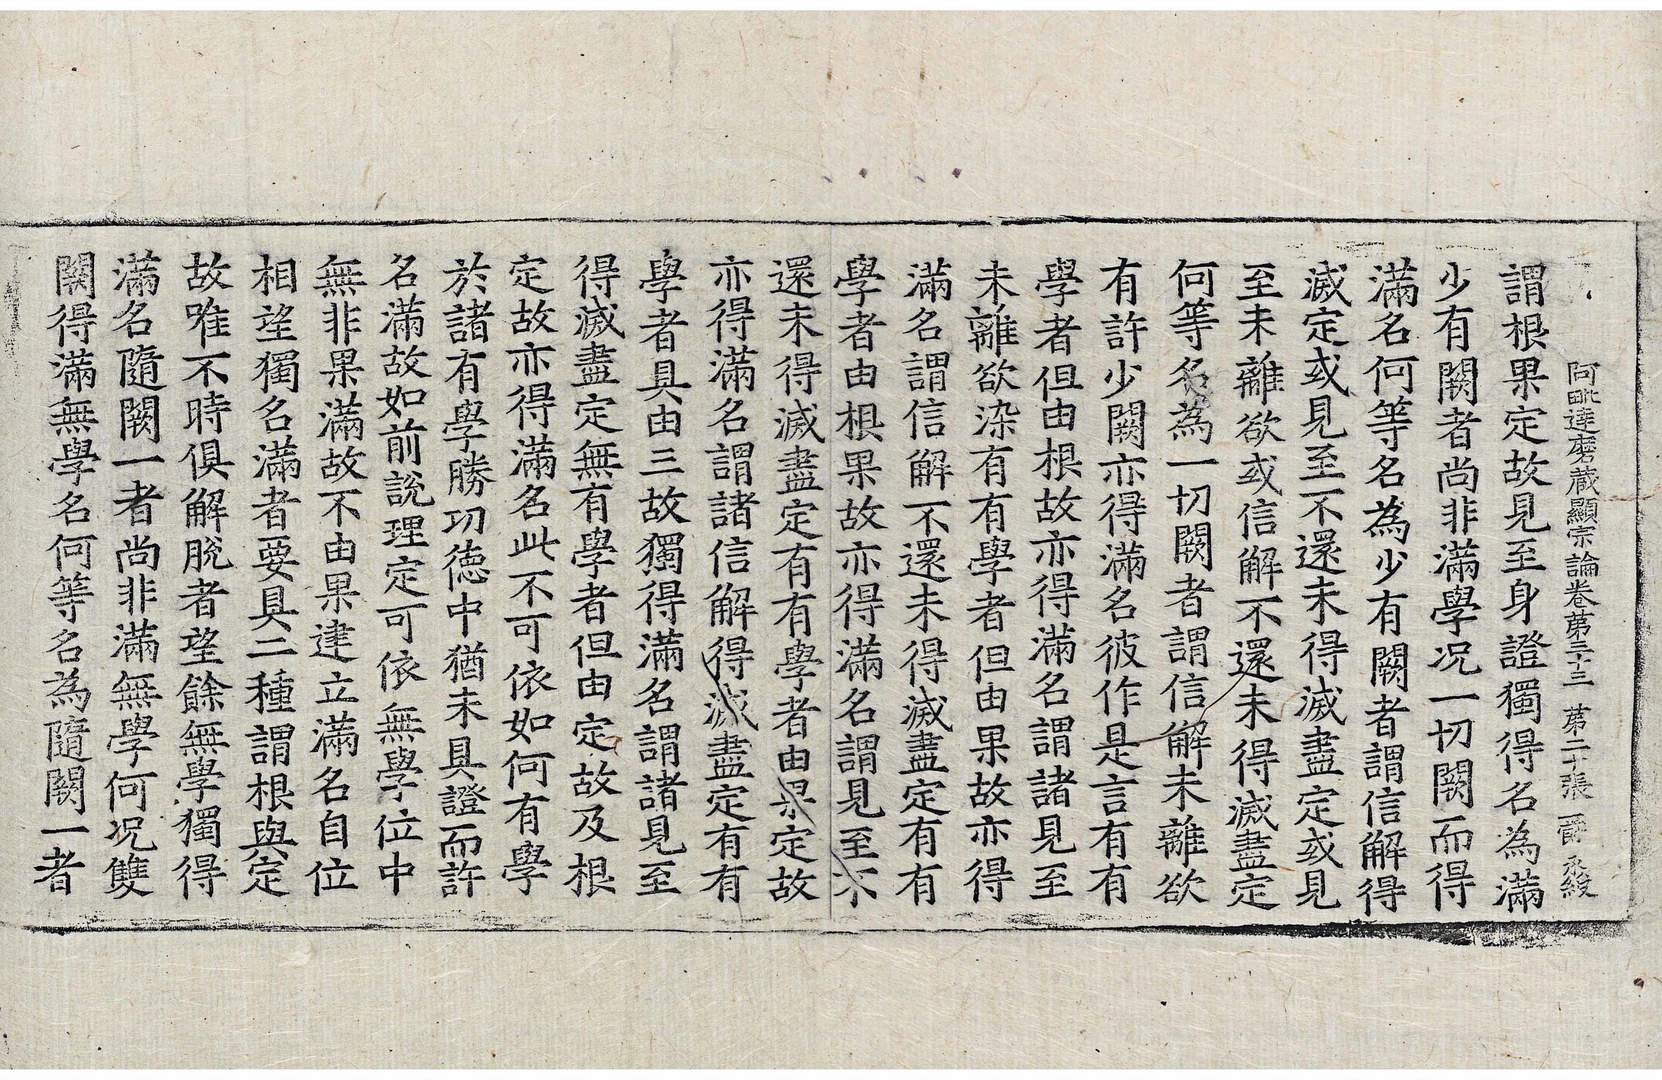 阿毗達磨藏顯宗論卷第三十三 第二十張 爵 永紋
謂根果定故見至身證獨得名為滿
少有闕者尚非滿學況一切闕而得
滿名何等名為少有闕者謂信解得
滅定或見至不還未得滅盡定或見
至未離欲或信解不還未得滅盡定
何等名為一切闕者謂信解未離欲
有許少闕亦得滿名彼作是言有有
學者但由根故亦得滿名謂諸見至
未離欲染有有學者但由果故亦得
滿名謂信解不還未得滅盡定有有
學者由根果故亦得滿名謂見至不
還未得滅盡定有有學者由果定故
亦得滿名謂諸信解得滅盡定有有
學者具由三故獨得滿名謂諸見至
得滅盡定無有學者但由定故及根
定故亦得滿名此不可依如何有學
於諸有學勝功德中猶未具證而許
名滿故如前說理定可依無學位中
無非果滿故不由果建立滿名自位
相望獨名滿者要具二種謂根與定
故唯不時俱解脫者望餘無學獨得
滿名隨闕一者尚非滿無學何況雙
闕得滿無學名何等名為隨闕一者